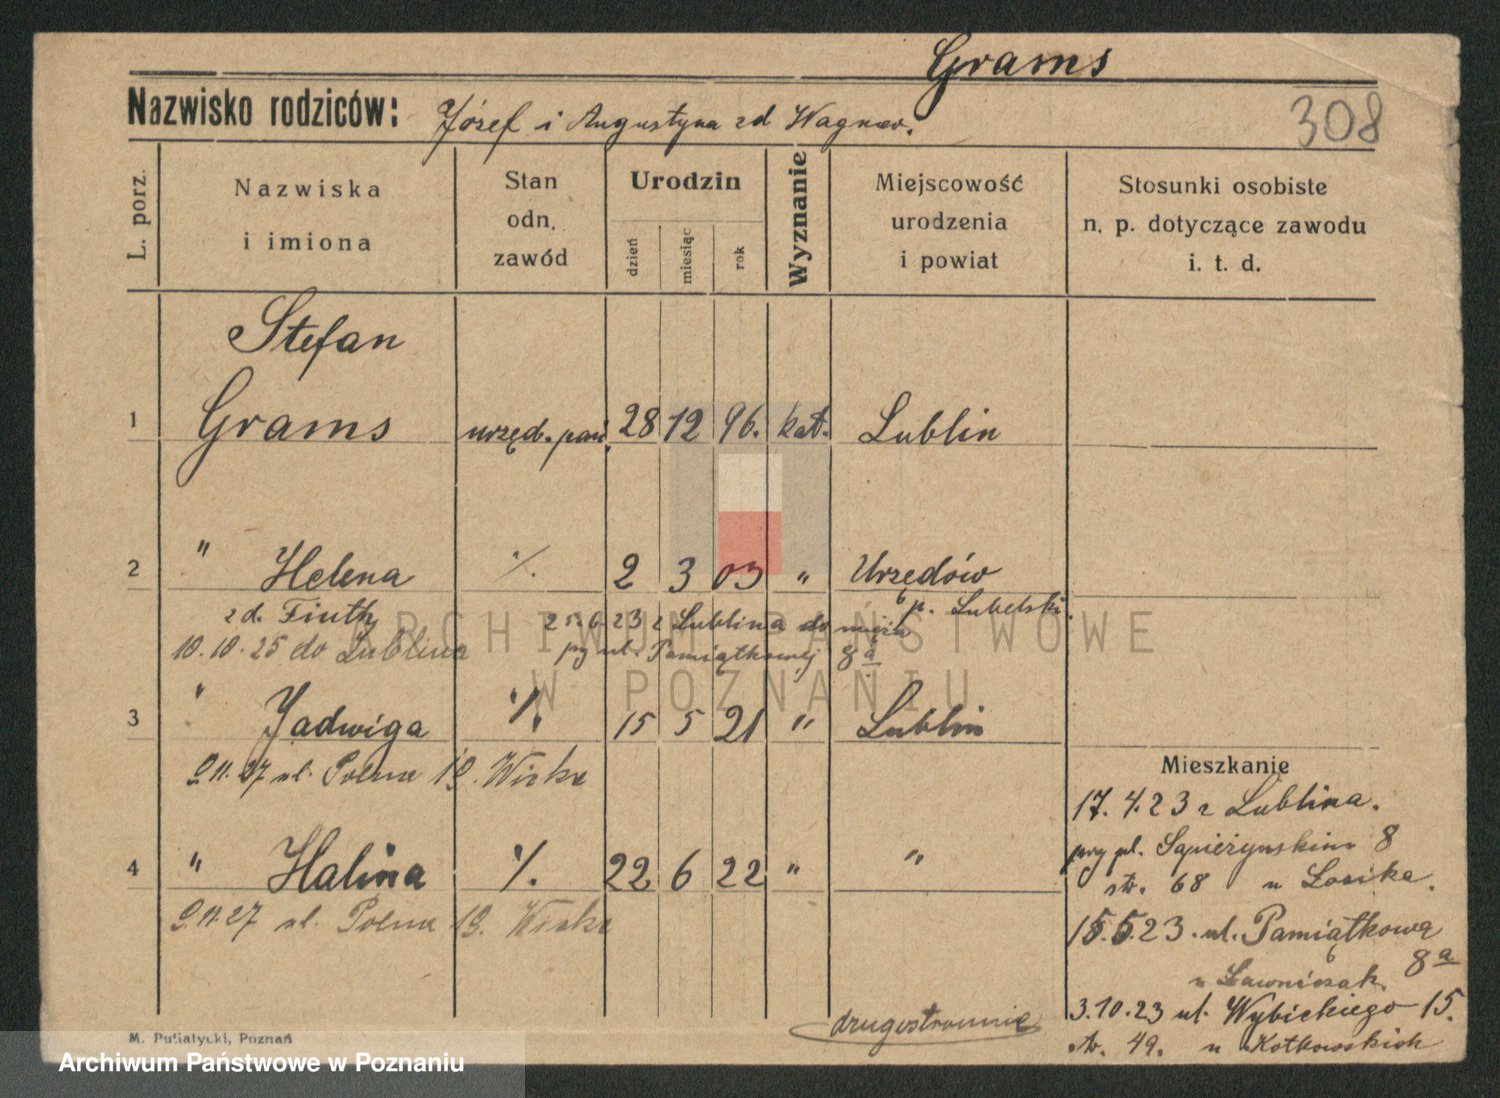 Grams
Nazwisko rodziców: Józef i Augustyna zd Wagner.
308
L. porz.
Nazwiska i imiona
Stan odn. zawód
Urodzin
dzień
miesiąc
rok
Wyznanie
Miejscowość urodzenia i powiat
Stosunki osobiste n. p. dotyczące zawodu i. t. d.
Stefan
1 Grams urzęd. pań. 28 12 96. kat. Lublin
2 " Helena ·/. 2 3 03 " Urzędów
zd. Fiuth p. Lubelski.
25.6.23 z Lublina do męża
10.10.25 do Lublina
przy ul. Pamiątkowej 8a
3 " Jadwiga ·/. 15 5 21 " Lublin
9.11.27 ul. Polna 19.
4 " Halina ·/. 22 6 22 " "
9.11.27 ul. Polna 19.
Mieszkanie
17.4.23 z Lublina.
przy pl. Sapieżyńskim 8
str. 68 u
15.5.23. ul. Pamiątkowa 8a
u Ławniczak
3.10.23 ul. Wybickiego 15.
str. 49. u Kotkowskich
drugostronnie
M. Putiatycki, Poznań
ARCHIWUM PAŃSTWOWE
W POZNANIU
Archiwum Państwowe w Poznaniu